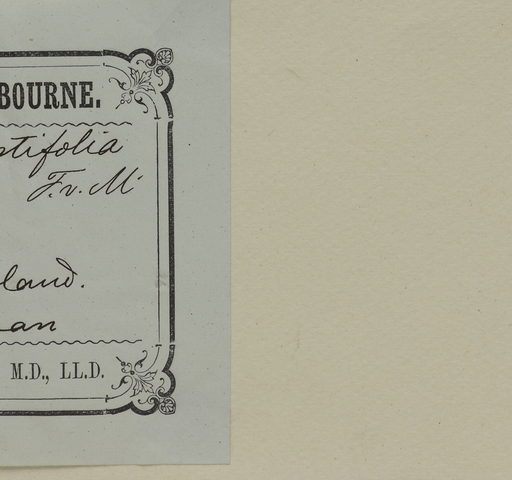 BOURNE.
stifolia
F.v.M.
land.
an
M.D., LL.D.